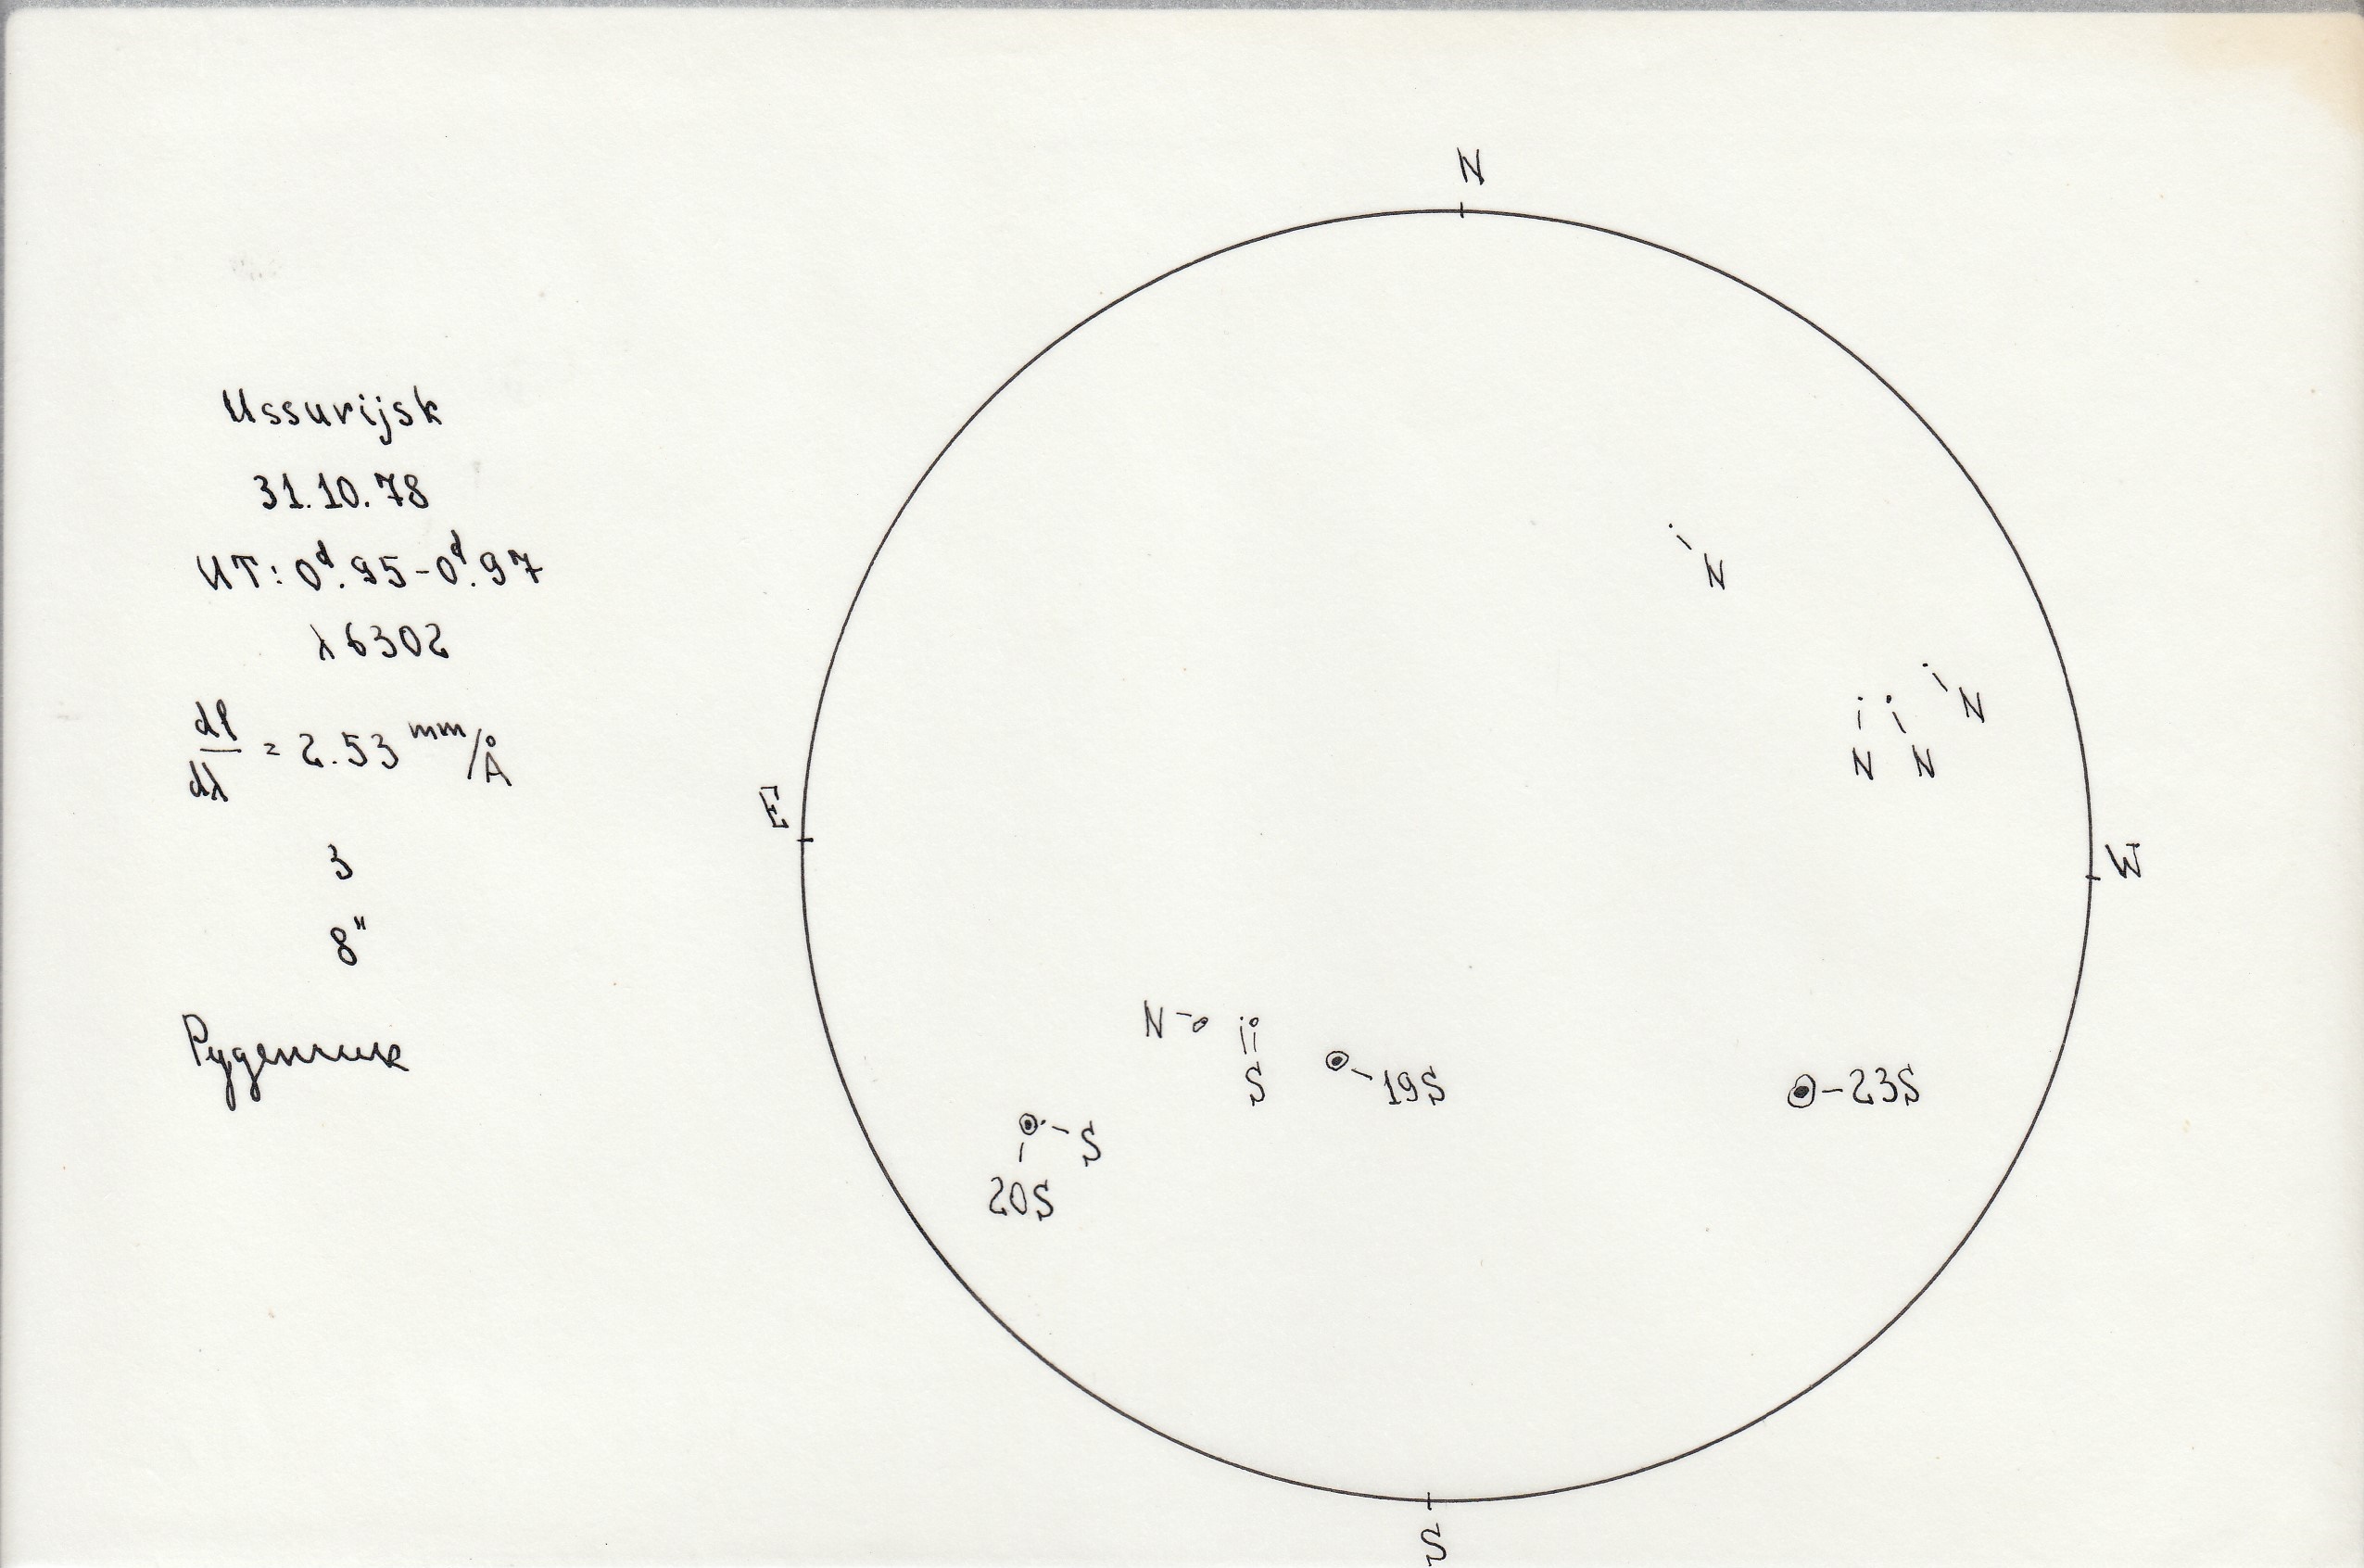 N
Ussurijsk
31.10.78
UT: 0ᵈ.95-0ᵈ.97
λ 6302
dl/dλ = 2.53 mm/Å
3
8"
Руденчик
N
N
N N
E
W
N
S
19S
23S
S
20S
S